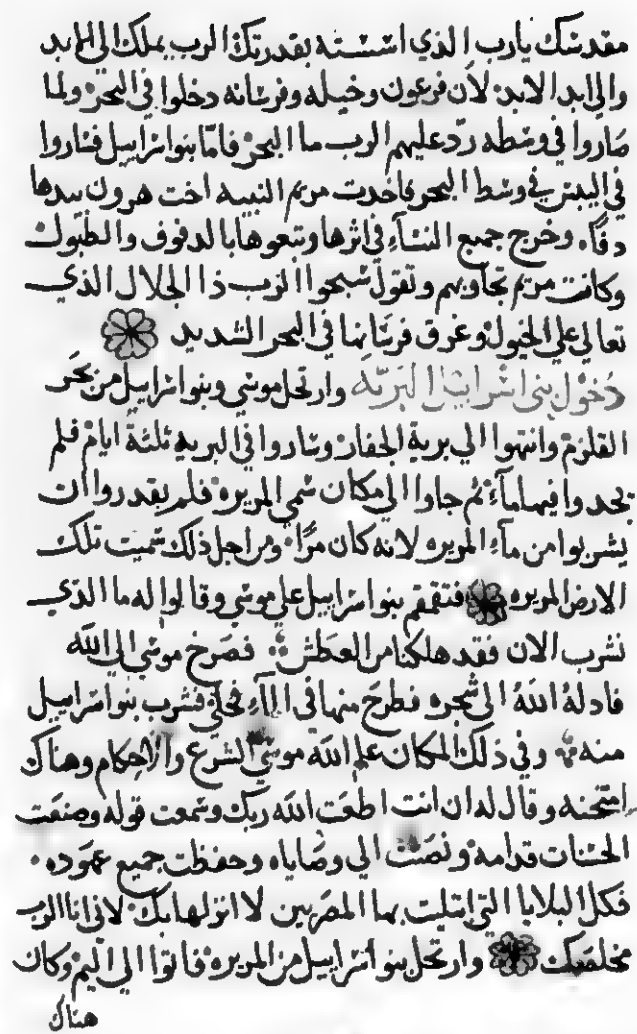 مقدسك يارب الذي اسسته بقدرتك الرب يملك الى الابد
والي ابد الابد لأن فرعون وخيله وفرسانه دخلوا في البحر ولما
صاروا في وسطه ردّ عليهم الرب ما البحر فامّا بنوا سراييل فساروا
في اليبس في وسط البحر فاخدت مريم النبيه اخت هرون بيدها
دفًا، وخرج جميع النسآء في اثرها وتبعوها بالدفوف والطبول
وكانت مريم تجاوبهم وتقول سبحوا الرب ذا الجلال الذي
تعالي علي الخيول وغرق فرسانها في البحر الشديد
دخول بني اسراييل البريّه وارتحل موسي وبنوا سراييل من بحر
القلزم وانتهوا الي برية الجفار وساروا في البريه ثلثة ايام فلم
يجدوا فيها مآء ثم جاوا الي مكان سمي المريره فلم يقدروا ان
يشربوا من مآء المريره لانه كان مرًا ومن اجل ذلك سميت تلك
الارض المريره فتقمقم بنوا سراييل علي موسي وقالوا له ما الذي
نشرب الان فقد هلكنا من العطش فصرخ موسي الي الله
فادله الله الى شجره فطرح منها في المآء فحلي فشرب بنوا سراييل
منه وفي ذلك المكان علم الله موسي الشرع والاحكام وهناك
امتحنه وقال له ان انت اطعت الله ربك وسمعت قوله وصنعت
الحسنات قدامه ونصت الي وصاياه وحفظت جميع عهوده
فكل البلايا التي ابتليت بها المصريين لا انزلها بك لاني انا الرب
مخلصك وارتحل بنوا سراييل من المريره فاتوا الي اليم وكان
هناك